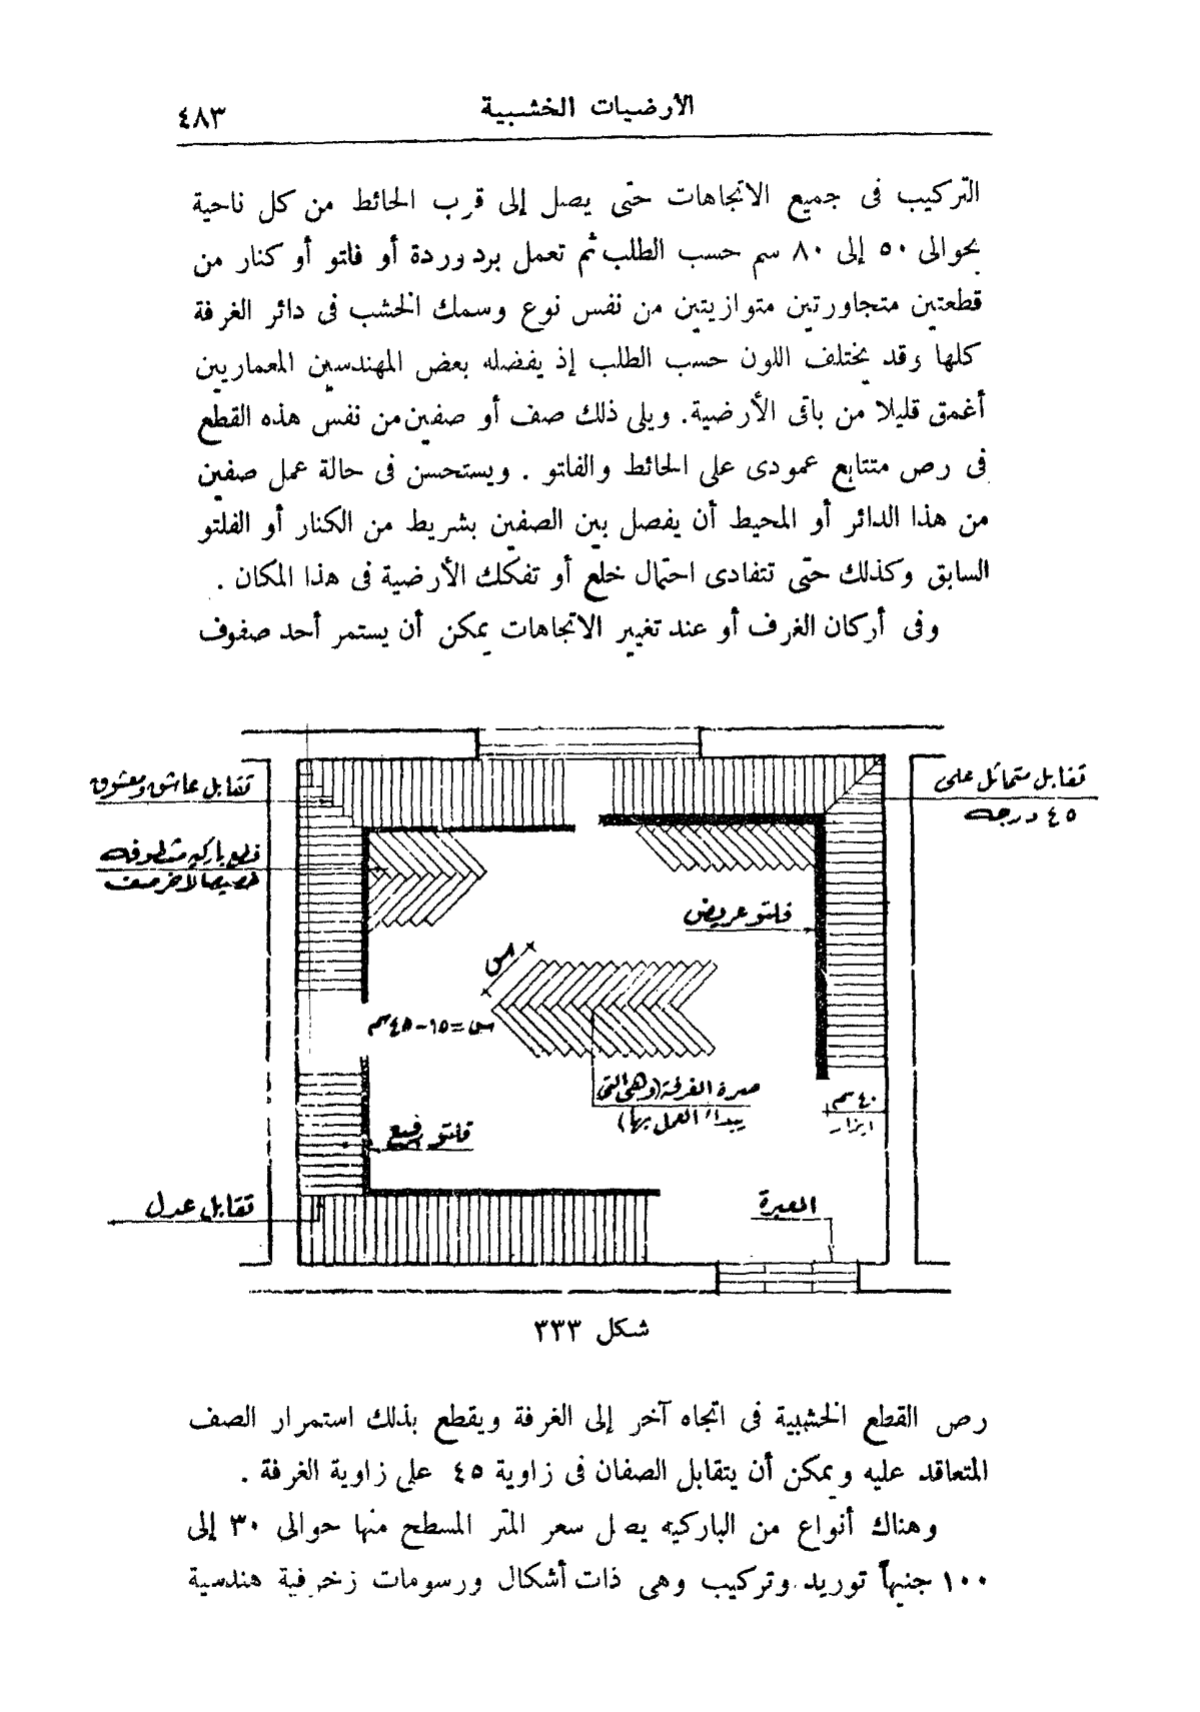 الأرضيات الخشبية
٤٨٣
التركيب فى جميع الاتجاهات حتى يصل إلى قرب الحائط من كل ناحية
بحوالى ٥٠ إلى ٨٠ سم حسب الطلب ثم تعمل بردوردة أو فلتو أو كنار من
قطعتين متجاورتين متوازيتين من نفس نوع وسمك الخشب فى دائر الغرفة
كلها وقد يختلف اللون حسب الطلب إذ يفضله بعض المهندسين المعماريين
أغمق قليلا من باقى الأرضية. ويلى ذلك صف أو صفين من نفس هذه القطع
فى رص متتابع عمودى على الحائط والفاتو . ويستحسن فى حالة عمل صفين
من هذا الدائر أو المحيط أن يفصل بين الصفين بشريط من الكنار أو الفلتو
السابق وكذلك حتى تتفادى احتمال خلع أو تفكك الأرضية فى هذا المكان .
وفى أركان الغرف أو عند تغيير الاتجاهات يمكن أن يستمر أحد صفوف
تقابل عاشق ومعشوق
تقابل متماثل على
٤٥ درجه
قطع باركيه مشطوفه
خصيصا لآخر صف
فلتو عريض
س
س = ١٥ - ٤٥ سم
صرة الغرفة (وهى التى
يبدأ العمل بها)
٤٠ سم
ايزار
فلتو رفيع
تقابل عدل
المعبرة
شكل ٣٣٣
رص القطع الخشبية فى اتجاه آخر إلى الغرفة ويقطع بذلك استمرار الصف
المتعاقد عليه ويمكن أن يتقابل الصفان فى زاوية ٤٥ على زاوية الغرفة .
وهناك أنواع من الباركيه يصل سعر المتر المسطح منها حوالى ٣٠ إلى
١٠٠ جنيهاً توريد وتركيب وهى ذات أشكال ورسومات زخرفية هندسية